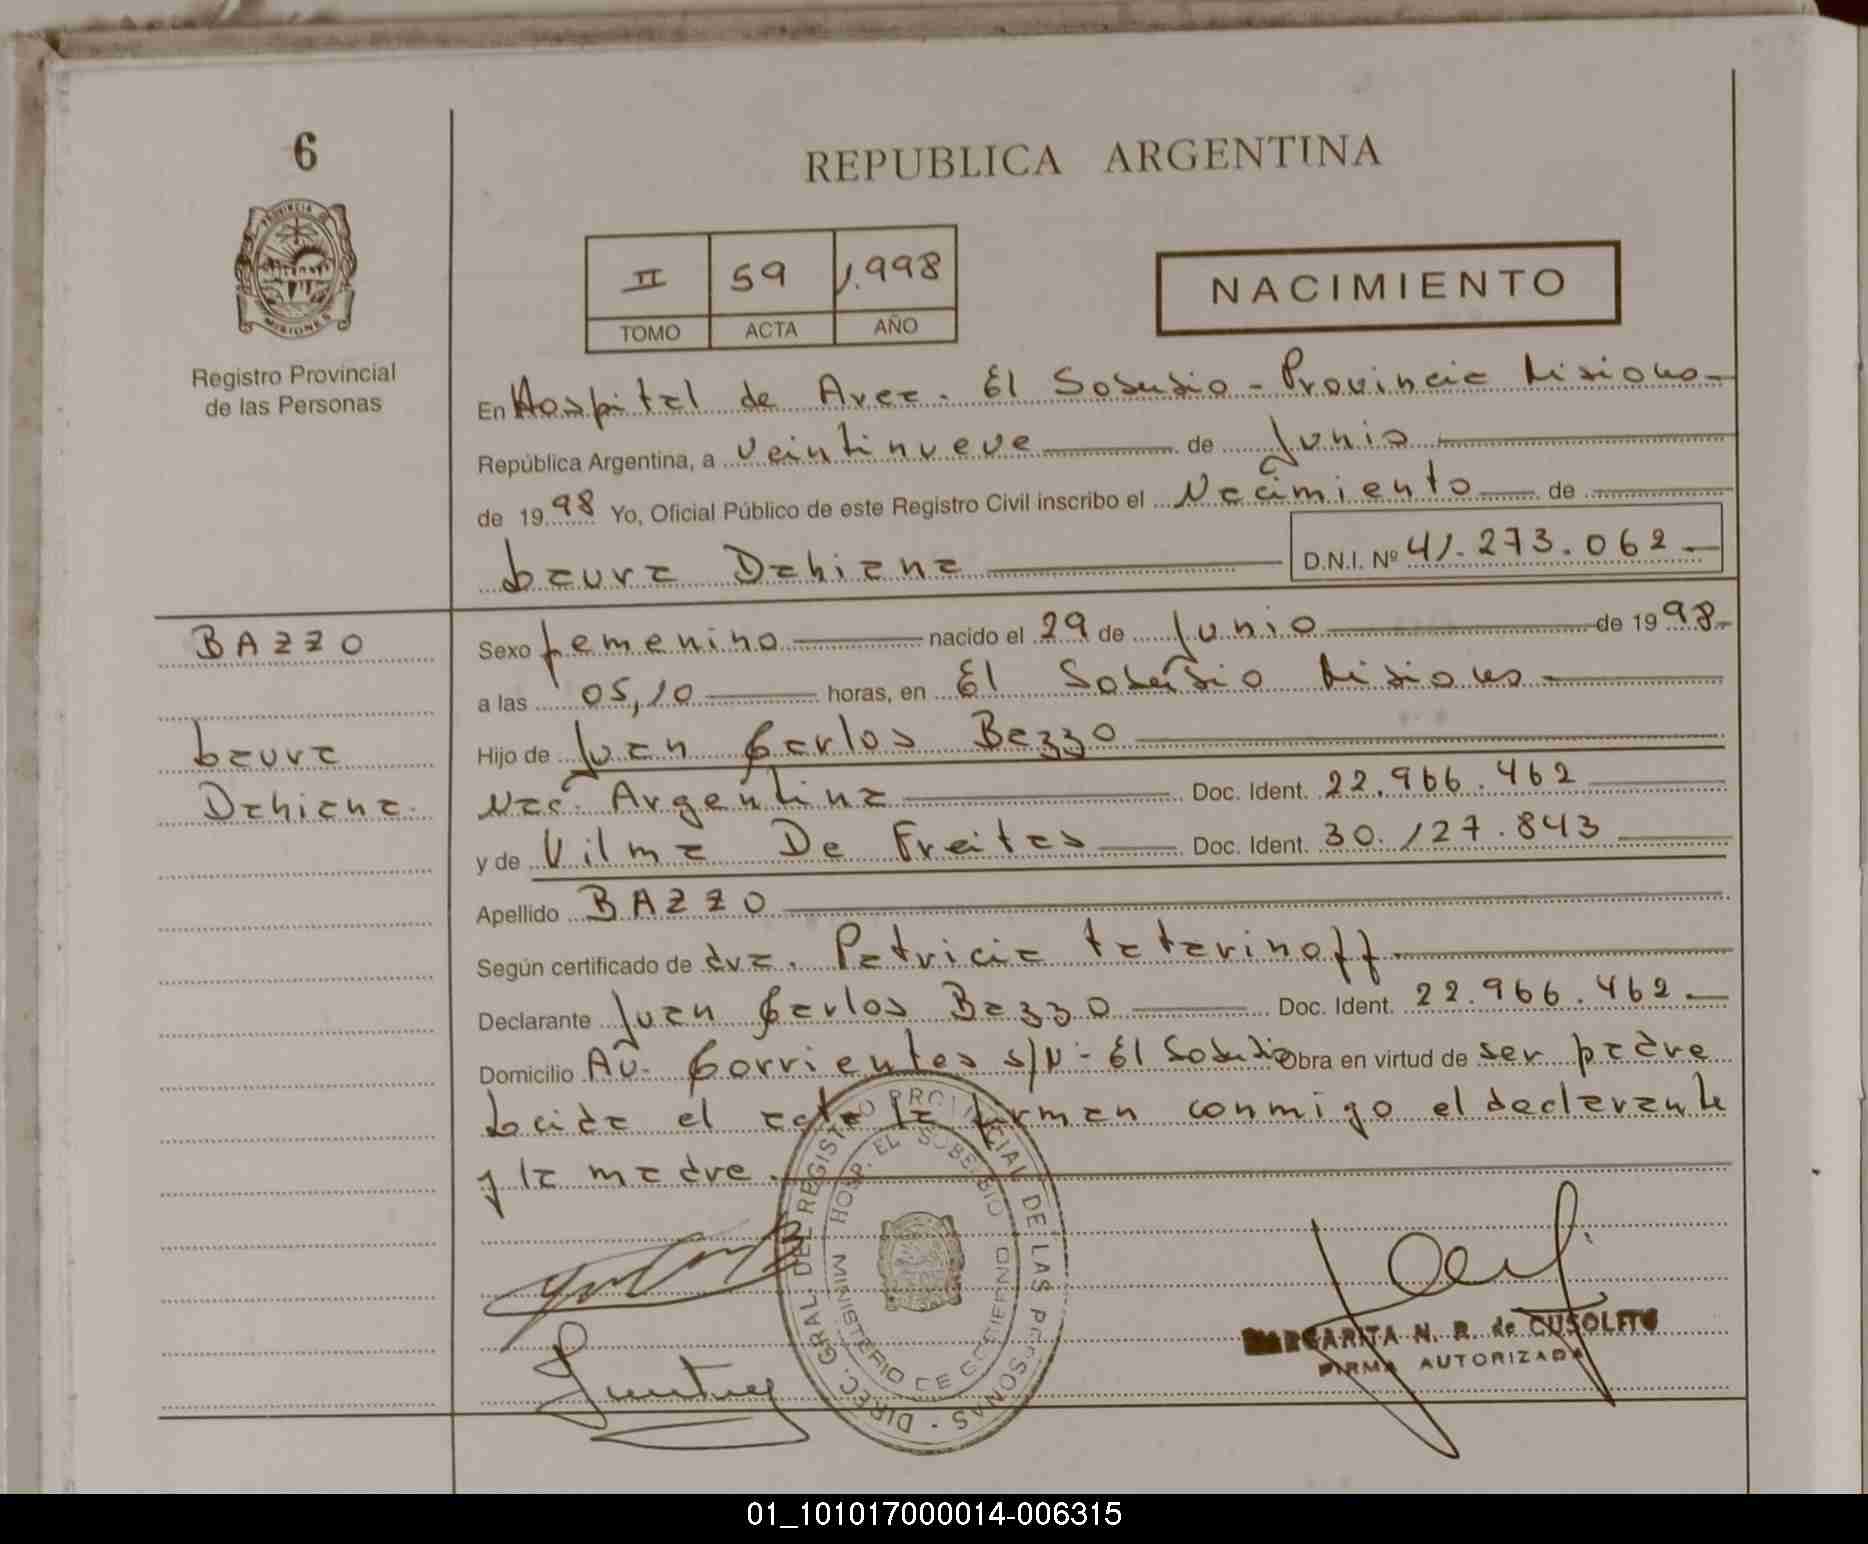 6
REPUBLICA ARGENTINA
PROVINCIA DE
MISIONES
Registro Provincial
de las Personas
II 59 1.998
TOMO ACTA AÑO
NACIMIENTO
En Hospital de Area. El Soberbio - Provincia Misiones -
República Argentina, a veintinueve de Junio
de 1998 Yo, Oficial Público de este Registro Civil inscribo el Nacimiento de
Laura Dahiana D.N.I. Nº 41.273.062
BAZZO
Laura
Dahiana.
Sexo femenino nacido el 29 de Junio de 1998-
a las 05,10 horas, en El Soberbio Misiones
Hijo de Juan Carlos Bazzo
Nac. Argentina Doc. Ident. 22.966.462
y de Vilma De Freitas Doc. Ident. 30.127.843
Apellido BAZZO
Según certificado de dra. Patricia Tatarinoff
Declarante Juan Carlos Bazzo Doc. Ident. 22.966.462
Domicilio Av. Corrientes s/N - El Soberbio Obra en virtud de ser padre
Leida el acta la firman conmigo el declarante
y la madre.
DIREC. GRAL. DEL REGISTRO PROVINCIAL DE LAS PERSONAS
HOSP. EL SOBERBIO
MINISTERIO DE GOBIERNO
MARGARITA N. R. de CUSOLITO
FIRMA AUTORIZADA
01_101017000014-006315